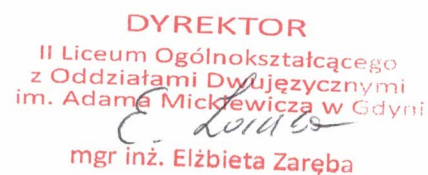 DYREKTOR
II Liceum Ogólnokształcącego
z Oddziałami Dwujęzycznymi
im. Adama Mickiewicza w Gdyni
mgr inż. Elżbieta Zaręba